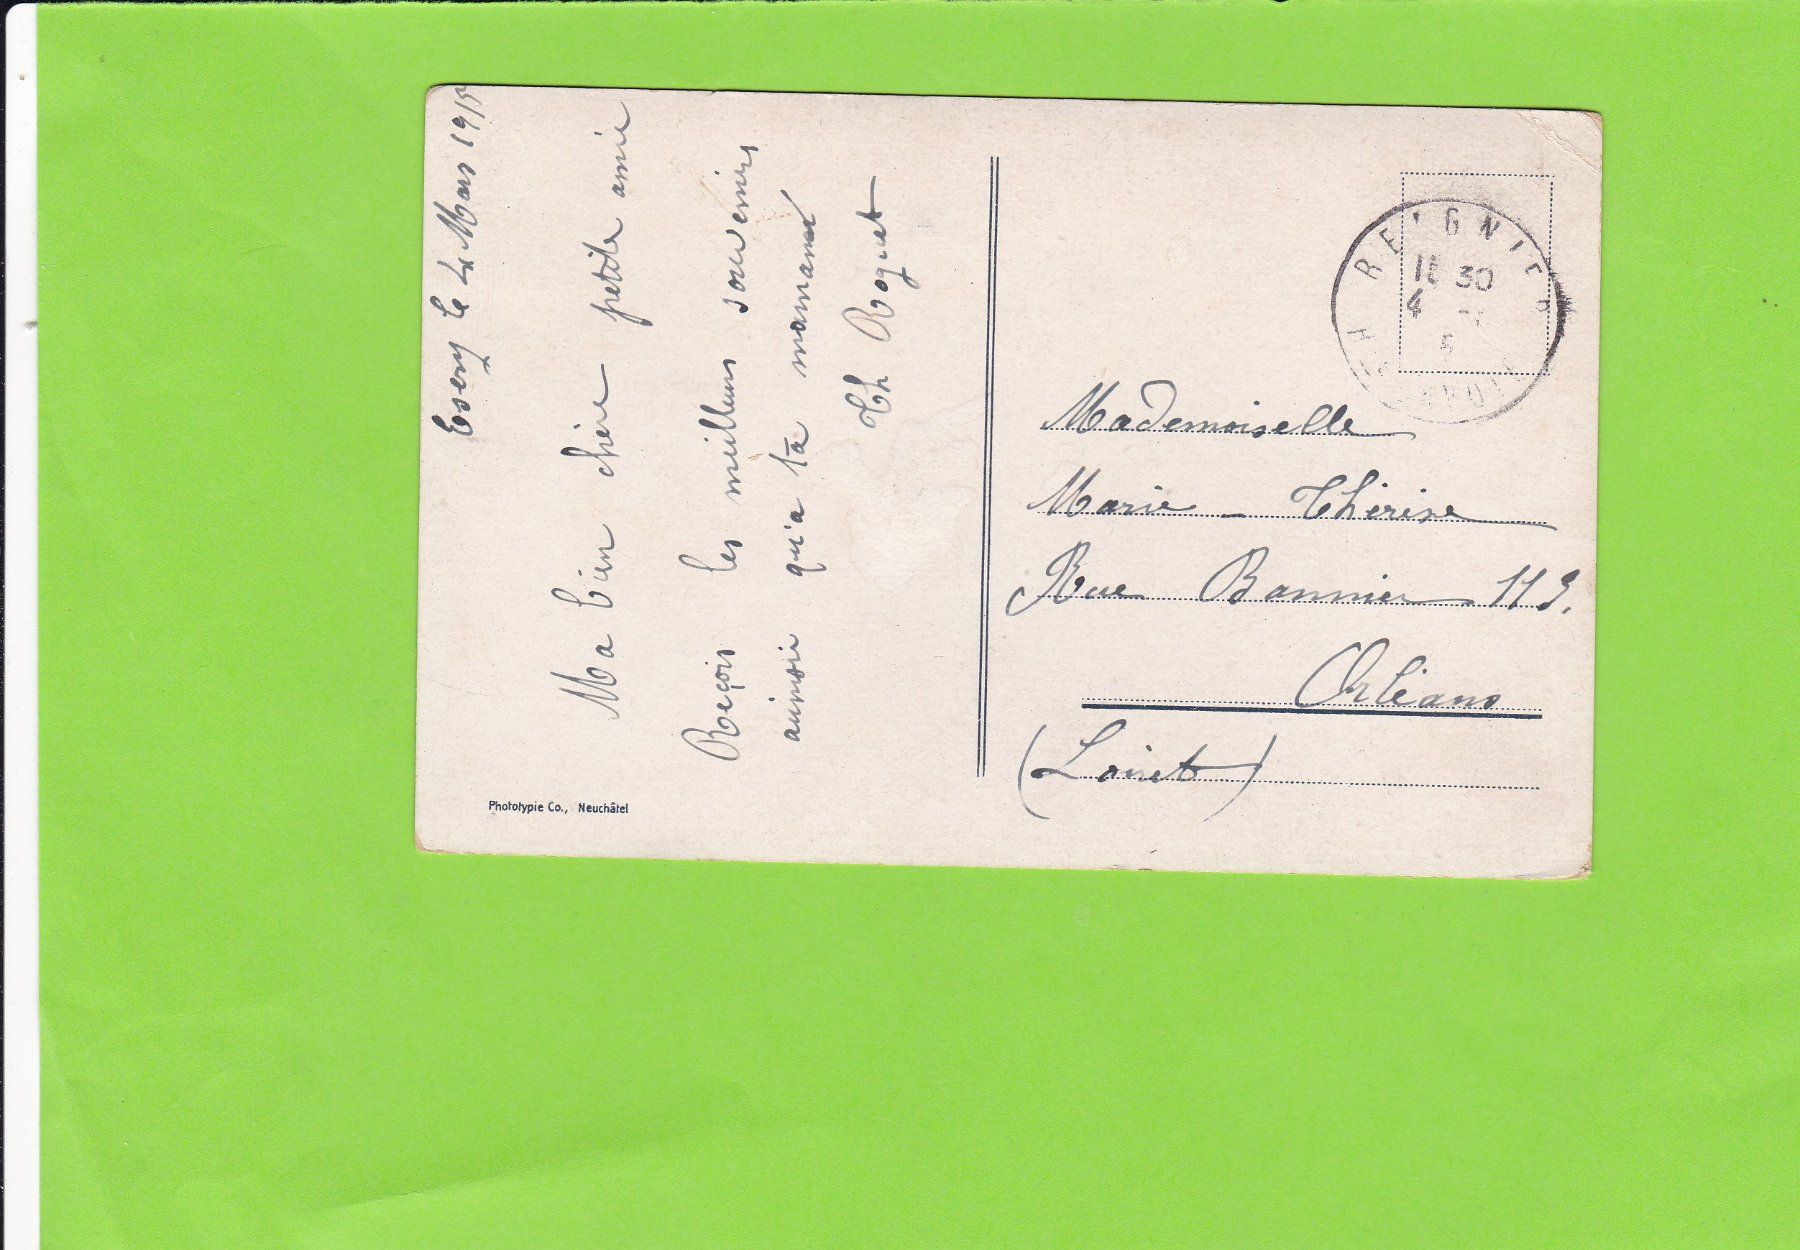 Esery le 4 Mars 1915
Ma bien chère petite amie
Reçois les meilleurs souvenirs
ainsi qu'a ta maman
Th Roguet
Phototypie Co., Neuchâtel
REIGNIER
11 30
4
5
Mademoiselle
Marie - Thérèse
Rue Bannier 113.
Orléans
(Loiret)